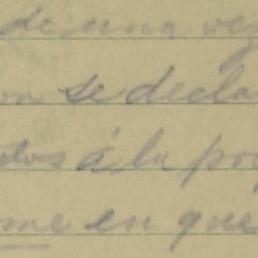 de una ve
on se decla
tos á la pro
me en que